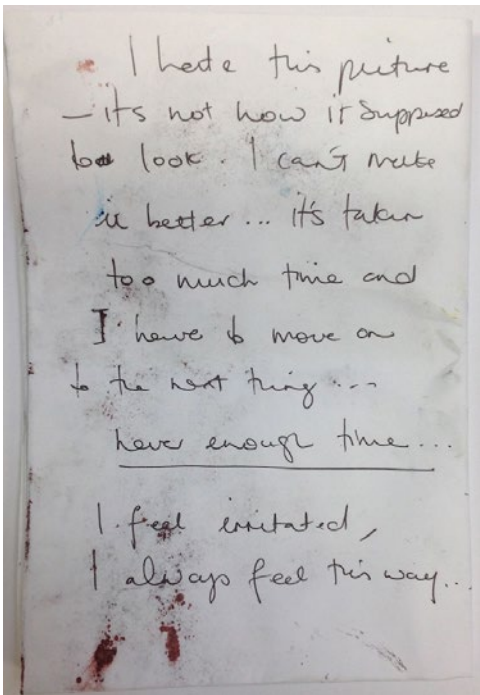 I hate this picture
— it's not how it supposed
to look. I can't make
it better... it's taken
too much time and
I have to move on
to the next thing...
never enough time...
I feel irritated,
I always feel this way...